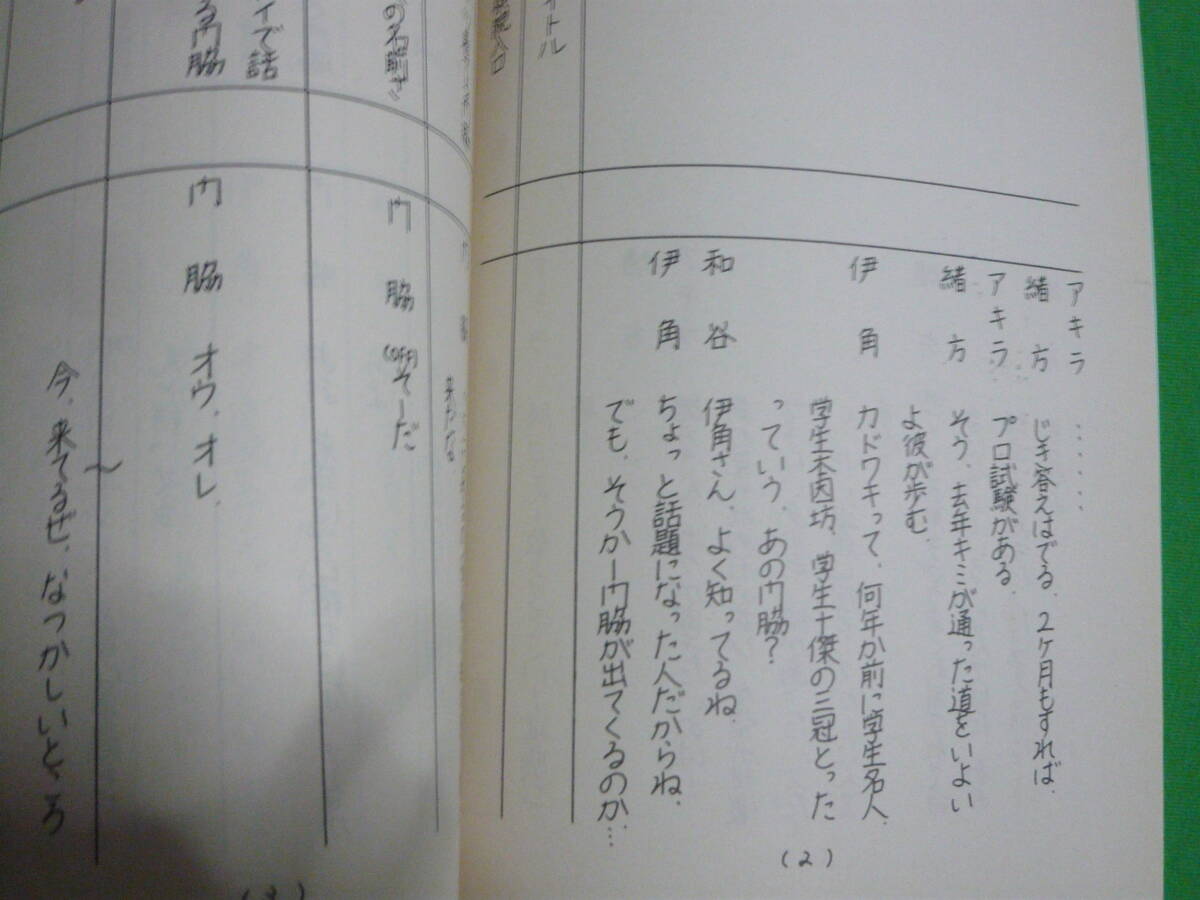 アキラ ・・・・・・
緒方 じき答えはでる、2ヶ月もすれば、
アキラ プロ試験がある、
緒方 そう、去年キミが通った道をいよい
よ彼が歩む、
伊角 カドワキって、何年か前に学生名人、
学生本因坊、学生十傑の三冠とった
っていう、あの門脇?
和谷 伊角さん、よく知ってるね、
伊角 ちょっと話題になった人だからね、
でも、そうかー門脇が出てくるのか、…
イトル
入口
(2)
門脇
来たな
門脇 (OFF)そーだ
イで話
る門脇
門脇 オウ、オレ、
〜
今、来てるぜ、なつかしいところ
(3)